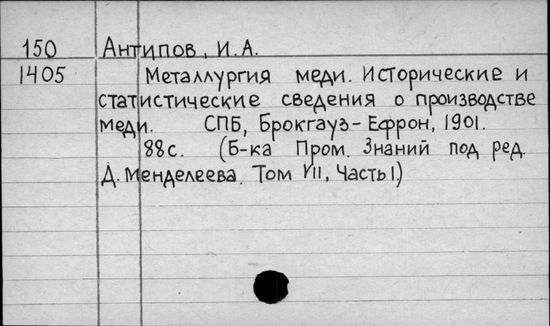 150 Антипов, И.А.
1405 Металлургия меди. Исторические и
статистические сведения о производстве
меди. СПБ, Брокгауз-Ефрон, 1901.
88с. (Б-ка Пром. Знаний под ред.
Д. Менделеева. Том VII, Часть I.)